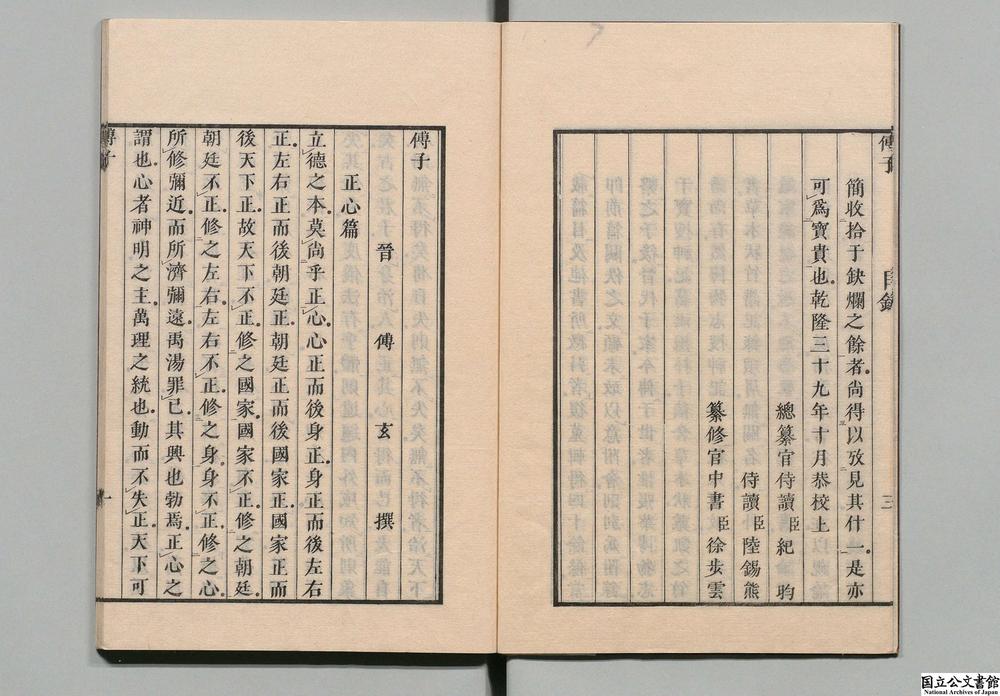 傅子
目錄
三
簡收拾于鈌爛之餘者尚得以攷見其什一是亦
可爲寶貴也乾隆三十九年十月恭校上
總纂官侍讀臣紀昀
侍讀臣陸錫熊
纂修官中書臣徐步雲
傅子
晉傅玄撰
正心篇
立德之本莫尚乎正心心正而後身正身正而後左右
正左右正而後朝廷正朝廷正而後國家正國家正而
後天下正故天下不正修之國家國家不正修之朝廷
朝廷不正修之左右左右不正修之身身不正修之心
所修彌近而所濟彌遠禹湯罪已其興也勃焉正心之
謂也心者神明之主萬理之統也動而不失正天下可
傅子
一
国立公文書館
National Archives of Japan